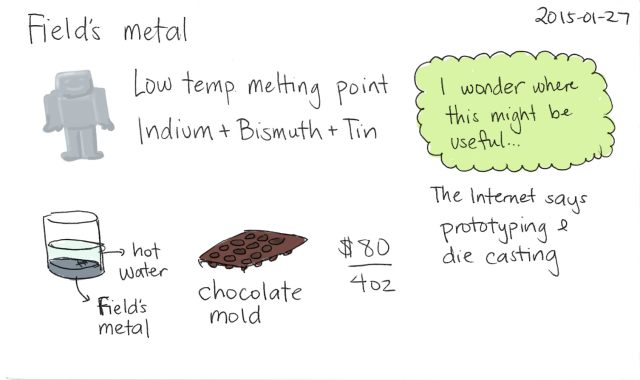 Field's metal
2015-01-27
Low temp melting point
Indium + Bismuth + Tin
I wonder where
this might be
useful...
The Internet says
prototyping &
die casting
hot
water
Field's
metal
chocolate
mold
$80
4oz